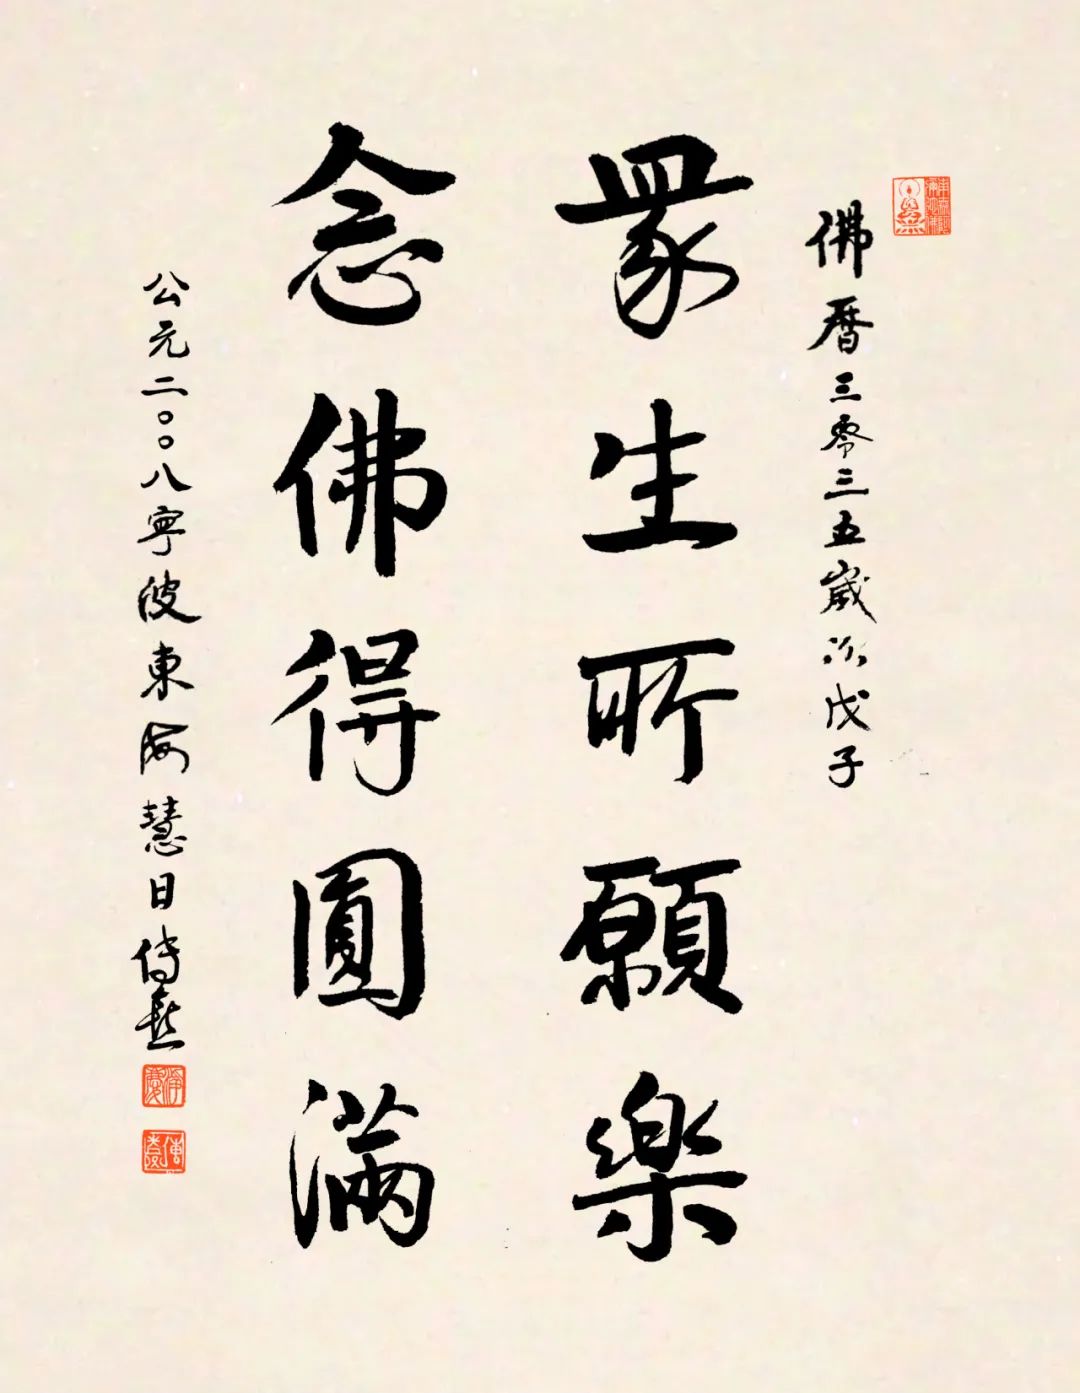 佛曆三零三五歲次戊子
眾生所願樂
念佛得圓滿
公元二〇〇八寧波東海慧日傳喜